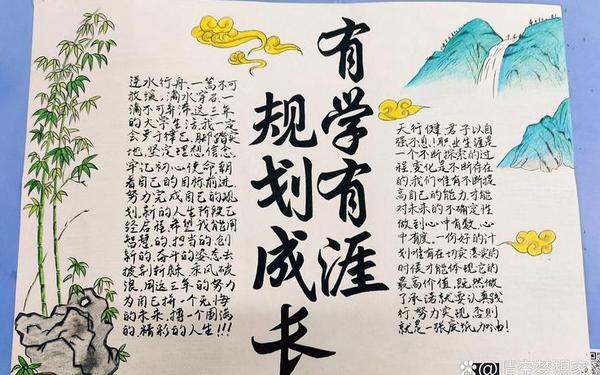 有学有涯
规划成长
逆水行舟,一篙不可
放缓;滴水穿石,一
滴不可弃滞。这三年
的大学生活,我一定
会更于律己,脚踏实
地,坚定理想,信念,
牢记初心使命,朝
着自己的目标前进,
努力完成自己的规
划,新的人生阶段已
经启程,希望我能用
智慧的,担当的,创
新的,奋斗的姿态去
披荆斩棘,乘风破
浪,用这三年的努力
为自己拼一个无悔
的未来,搏一个圆满
的,精彩的人生!!!
天行健,君子以自
强不息!职业生涯是
一个不断探索的过
程,变化是不断存在
的,我们唯有不断提
高自己的能力,才能
对未来的不确定性
做到心中有数,心
中有度,一份好的计
划唯有在切实落实的
时候才能体现它的
最高价值,既然做
了承诺就要认真践
行,努力实现,否则
就是一张废纸,加油!